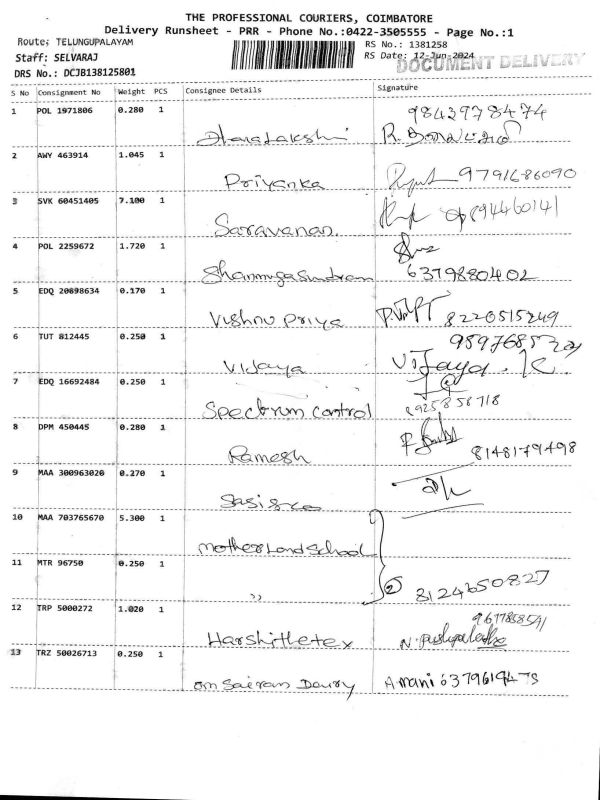 THE PROFESSIONAL COURIERS, COIMBATORE
Delivery Runsheet - PRR - Phone No.:0422-3505555 - Page No.:1
Route: TELUNGUPALAYAM
RS No.: 1381258
Staff: SELVARAJ
RS Date: 12-Jun-2024
DOCUMENT DELIVERY
DRS No.: DCJB138125801
S No Consignment No Weight PCS Consignee Details Signature
1 POL 1971806 0.280 1
9842978474
Dhanalakshmi R.
2 AWY 463914 1.045 1
Priyanka 9791686090
3 SVK 60451405 7.100 1
Saravanan.
4 POL 2259672 1.720 1
Shanmugasundram 6379880402
5 EDQ 20898634 0.170 1
Vishnu Priya 8220515249
6 TUT 812445 0.250 1
Vijaya Vijaya. K.
7 EDQ 16692484 0.250 1
Spectrum Control 8925858718
8 DPM 450445 0.280 1
Ramesh 8148179498
9 MAA 300963020 0.270 1
10 MAA 703765670 5.300 1
Mother Land School
11 MTR 96750 0.250 1
,, 2 8124650827
12 TRP 5000272 1.020 1
Harshithetex N.
13 TRZ 50026713 0.250 1
Om Sairam Dairy Amani 6379619475